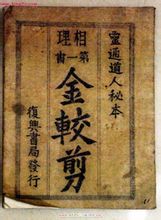 靈通道人秘本
相理
第一書
金較剪
復興書局發行